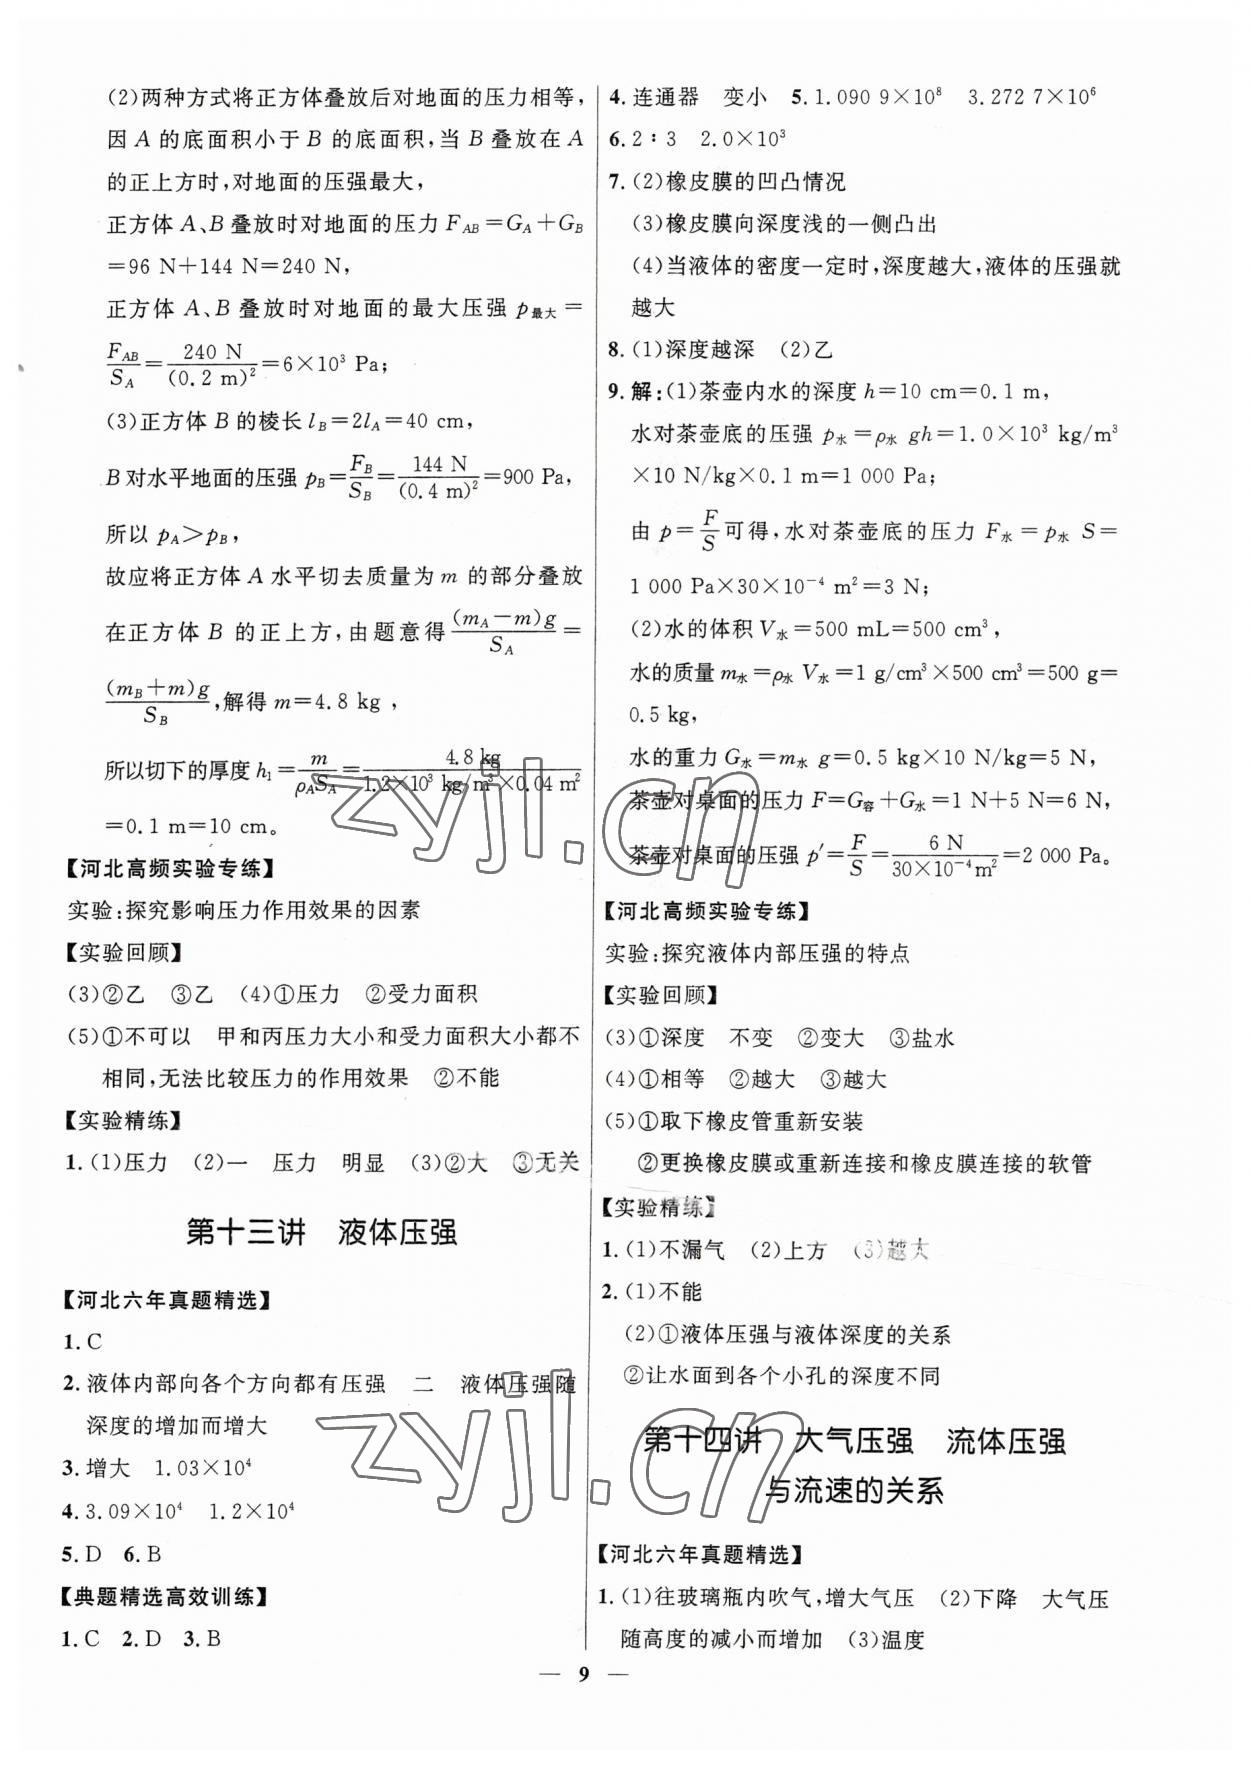 (2)两种方式将正方体叠放后对地面的压力相等,
因 A 的底面积小于 B 的底面积,当 B 叠放在 A
的正上方时,对地面的压强最大,
正方体 A、B 叠放时对地面的压力 F_AB=G_A+G_B
=96 N+144 N=240 N,
正方体 A、B 叠放时对地面的最大压强 p最大=
F_AB/S_A=240 N/(0.2 m)²=6×10³ Pa;
(3)正方体 B 的棱长 l_B=2l_A=40 cm,
B 对水平地面的压强 p_B=F_B/S_B=144 N/(0.4 m)²=900 Pa,
所以 p_A>p_B,
故应将正方体 A 水平切去质量为 m 的部分叠放
在正方体 B 的正上方,由题意得(m_A-m)g/S_A=
(m_B+m)g/S_B,解得 m=4.8 kg,
所以切下的厚度 h₁=m/ρ_AS_A=4.8 kg/1.2×10³ kg/m³×0.04 m²
=0.1 m=10 cm。
【河北高频实验专练】
实验:探究影响压力作用效果的因素
【实验回顾】
(3)②乙 ③乙 (4)①压力 ②受力面积
(5)①不可以 甲和丙压力大小和受力面积大小都不
相同,无法比较压力的作用效果 ②不能
【实验精练】
1.(1)压力 (2)一 压力 明显 (3)②大 ③无关
第十三讲 液体压强
【河北六年真题精选】
1.C
2.液体内部向各个方向都有压强 二 液体压强随
深度的增加而增大
3.增大 1.03×10⁴
4.3.09×10⁴ 1.2×10⁴
5.D 6.B
【典题精选高效训练】
1.C 2.D 3.B
4.连通器 变小 5.1.090 9×10⁸ 3.272 7×10⁶
6.2∶3 2.0×10³
7.(2)橡皮膜的凹凸情况
(3)橡皮膜向深度浅的一侧凸出
(4)当液体的密度一定时,深度越大,液体的压强就
越大
8.(1)深度越深 (2)乙
9.解:(1)茶壶内水的深度 h=10 cm=0.1 m,
水对茶壶底的压强 p水=ρ水 gh=1.0×10³ kg/m³
×10 N/kg×0.1 m=1 000 Pa;
由 p=F/S可得,水对茶壶底的压力 F水=p水 S=
1 000 Pa×30×10⁻⁴ m²=3 N;
(2)水的体积 V水=500 mL=500 cm³,
水的质量 m水=ρ水 V水=1 g/cm³×500 cm³=500 g=
0.5 kg,
水的重力 G水=m水 g=0.5 kg×10 N/kg=5 N,
茶壶对桌面的压力 F=G容+G水=1 N+5 N=6 N,
茶壶对桌面的压强 p′=F/S=6 N/30×10⁻⁴m²=2 000 Pa。
【河北高频实验专练】
实验:探究液体内部压强的特点
【实验回顾】
(3)①深度 不变 ②变大 ③盐水
(4)①相等 ②越大 ③越大
(5)①取下橡皮管重新安装
②更换橡皮膜或重新连接和橡皮膜连接的软管
【实验精练】
1.(1)不漏气 (2)上方 (3)越大
2.(1)不能
(2)①液体压强与液体深度的关系
②让水面到各个小孔的深度不同
第十四讲 大气压强 流体压强
与流速的关系
【河北六年真题精选】
1.(1)往玻璃瓶内吹气,增大气压 (2)下降 大气压
随高度的减小而增加 (3)温度
— 9 —
zyjl.cn
zyjl.cn